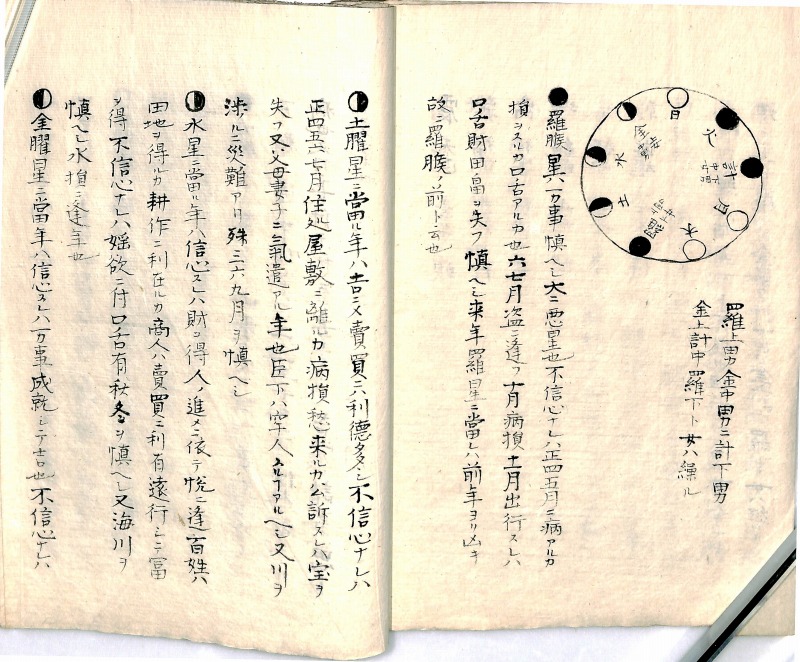 日
火
計
月
木
土
水
金
羅上男金中男ニ計下男
金上計中羅下ト女ハ繰ル
羅睺星ハ万事慎ヘシ大ニ悪星也不信心ナレハ正四五月ニ病アルカ
損スルカ口舌アルカ也六七月盗ニ逢フ十月病損十一月出行スレハ
口舌財田畠ヲ失フ慎ヘシ来年羅星ニ當レハ前年ヨリ凶キ
故ニ羅睺ノ前ト云也
土曜星ニ當ル年ハ吉ニメ賣買ニハ利徳多シ不信心ナレハ
正四五六七月住処屋敷ニ離ルカ病損愁来ルカ公訴スレハ宝ヲ
失フ又父母妻子ニ氣遣アル年也臣下ハ牢人スルアルヘシ又川ヲ
渉ルニ災難アリ殊三六九月ヲ慎ヘシ
水星ニ當ル年ハ信心スレハ財ヲ得人ノ進メニ依テ悦ニ逢百姓ハ
田地ヲ得ルカ耕作ニ利在ルカ商人ハ賣買ニ利有遠行シテ冨
ヲ得不信心ナレハ婬欲ニ付口舌有秋冬ヲ慎ヘシ又海川ヲ
慎ヘシ水損ニ逢年也
金曜星ニ當年ハ信心スレハ万事成就シテ吉也不信心ナレハ